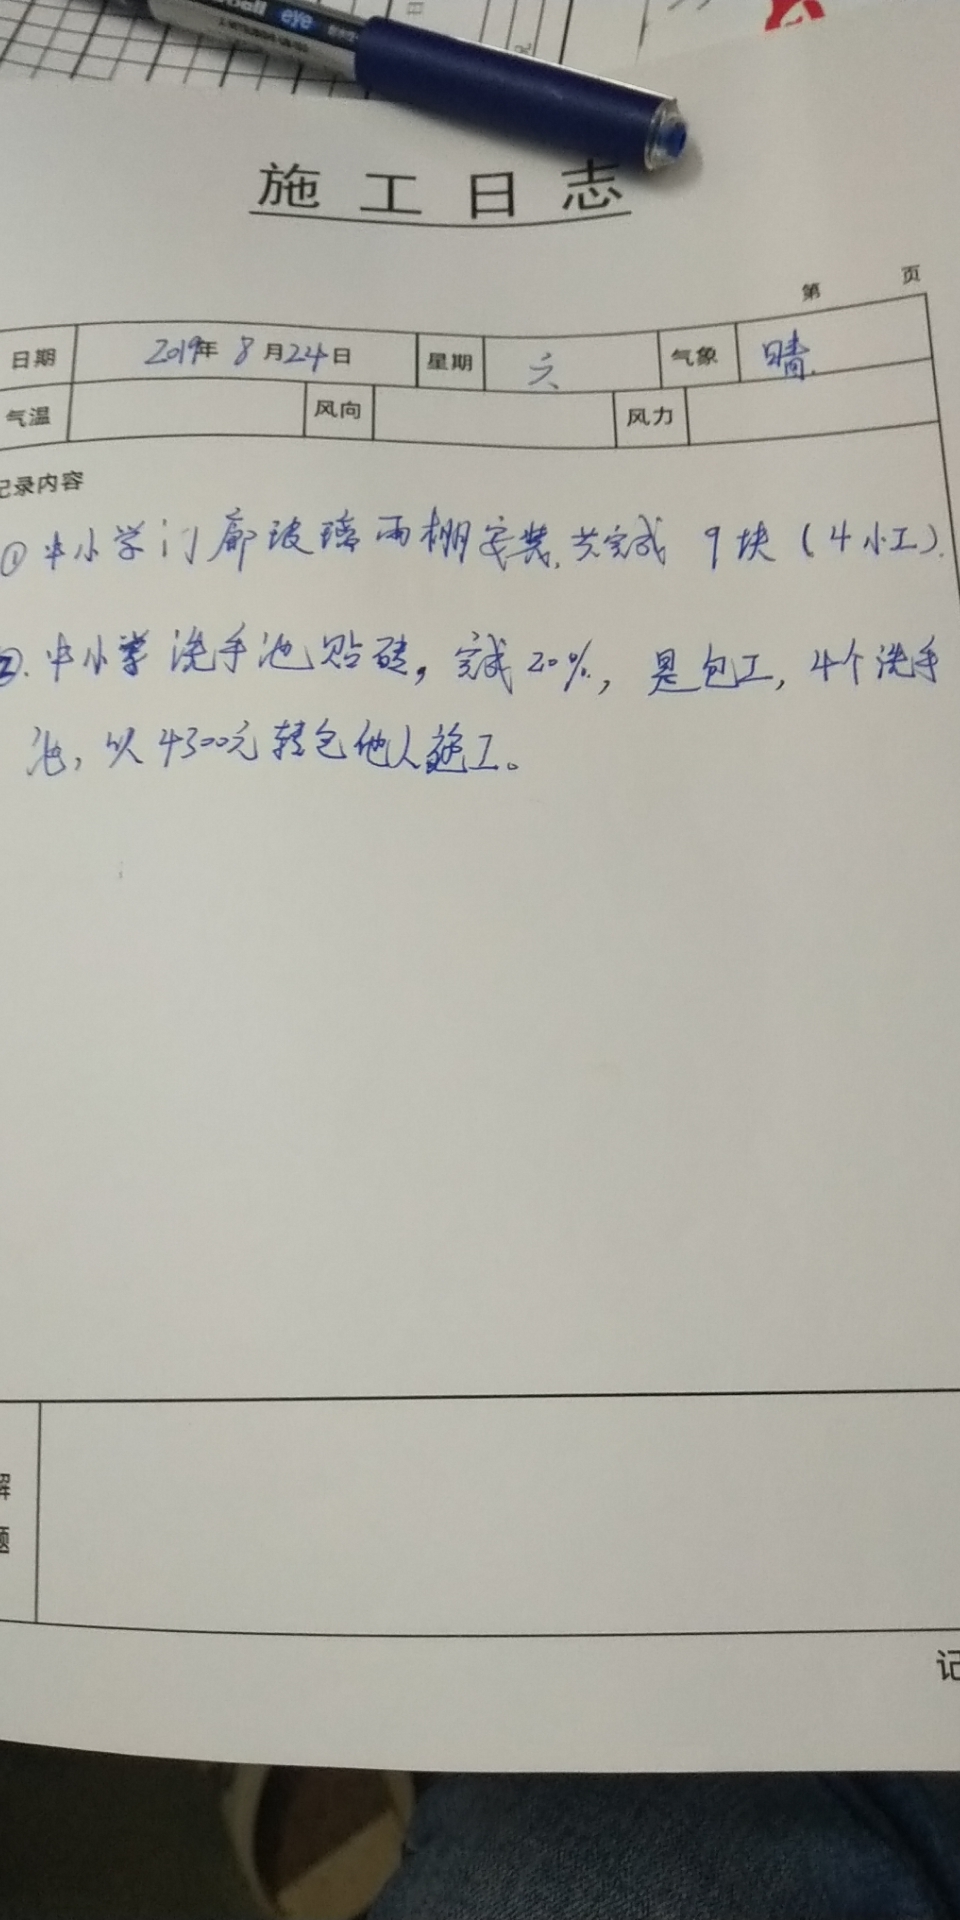 eye
施工日志
第 页
日期 2019年 8月24日 星期 六 气象 晴.
气温 风向 风力
记录内容
① 中小学门廊玻璃雨棚安装,共完成 9块(4小工).
②. 中小学洗手池贴砖，完成20%，是包工，4个洗手
池，以4300元转包他人施工。
解
题
记